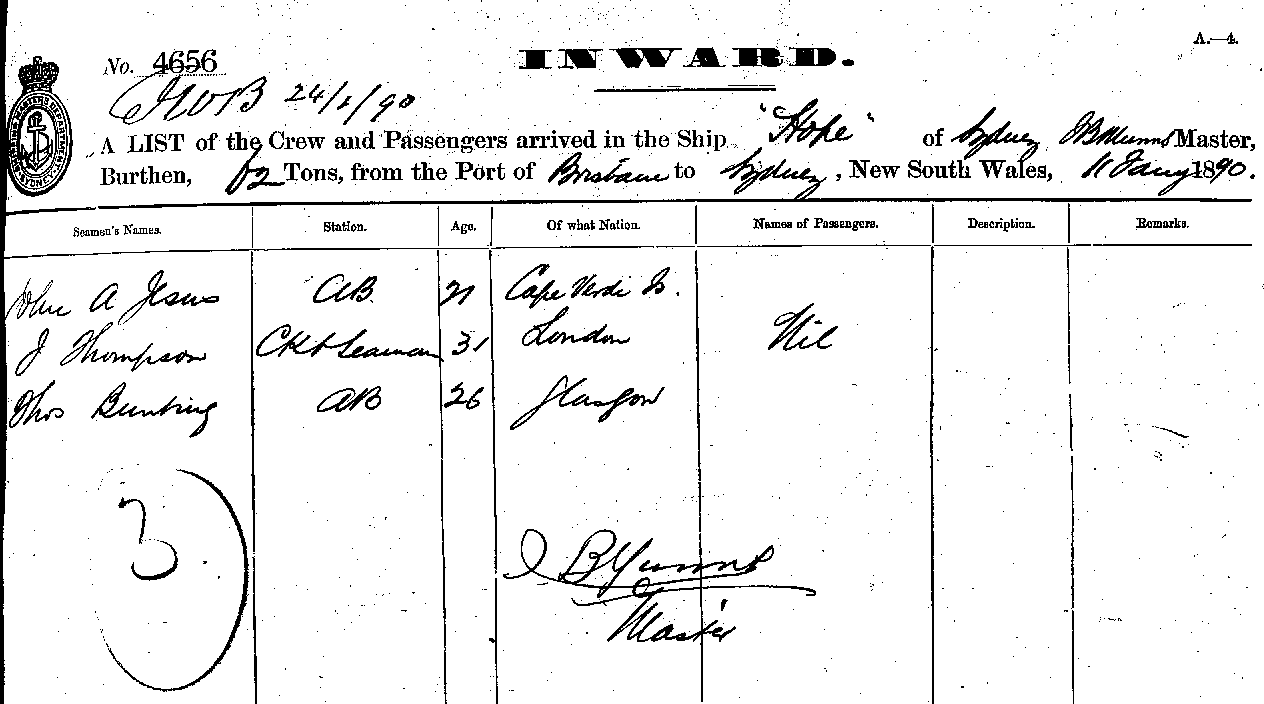 A.—4.
INWARD.
No. 4656
24/1/90
A LIST of the Crew and Passengers arrived in the Ship "Hope" of Sydney Master,
Burthen, 62 Tons, from the Port of Brisbane to Sydney, New South Wales, 11 Jany 1890.
Seamen's Names. Station. Age. Of what Nation. Names of Passengers. Description. Remarks.
John A Jesus AB 21 Cape Verde Is.
J Thompson Ck & Seaman 31 London Nil
Thos Bunting AB 26 Glasgow
3
Master